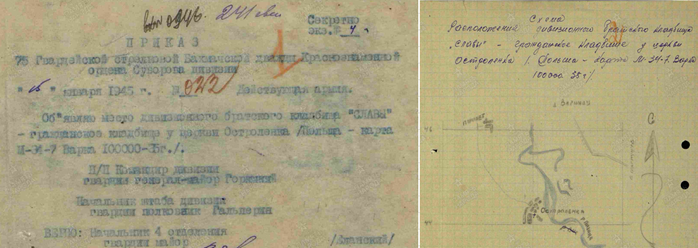 241 свп
Секретно
экз. № 4
ПРИКАЗ
75 Гвардейской стрелковой Бахмачской дважды Краснознаменной
ордена Суворова дивизии
января 1945 г. № 022 Действующая армия.
Объявляю место дивизионного братского кладбища "СЛАВЫ"
- гражданское кладбище у церкви Остроленка /Польша - карта
М-34-7 Варка 100000-35г./.
П/П Командир дивизии
гвардии генерал-майор Горишний
Начальник штаба дивизии
гвардии полковник Гальперин
ВЕРНО: Начальник 4 отделения
гвардии майор
Схема
Расположения дивизионного Братского кладбища
"Славы" - гражданское кладбище у церкви
Остроленка (Польша - карта М-34-7 Варка
100000 35г/
46
44
С